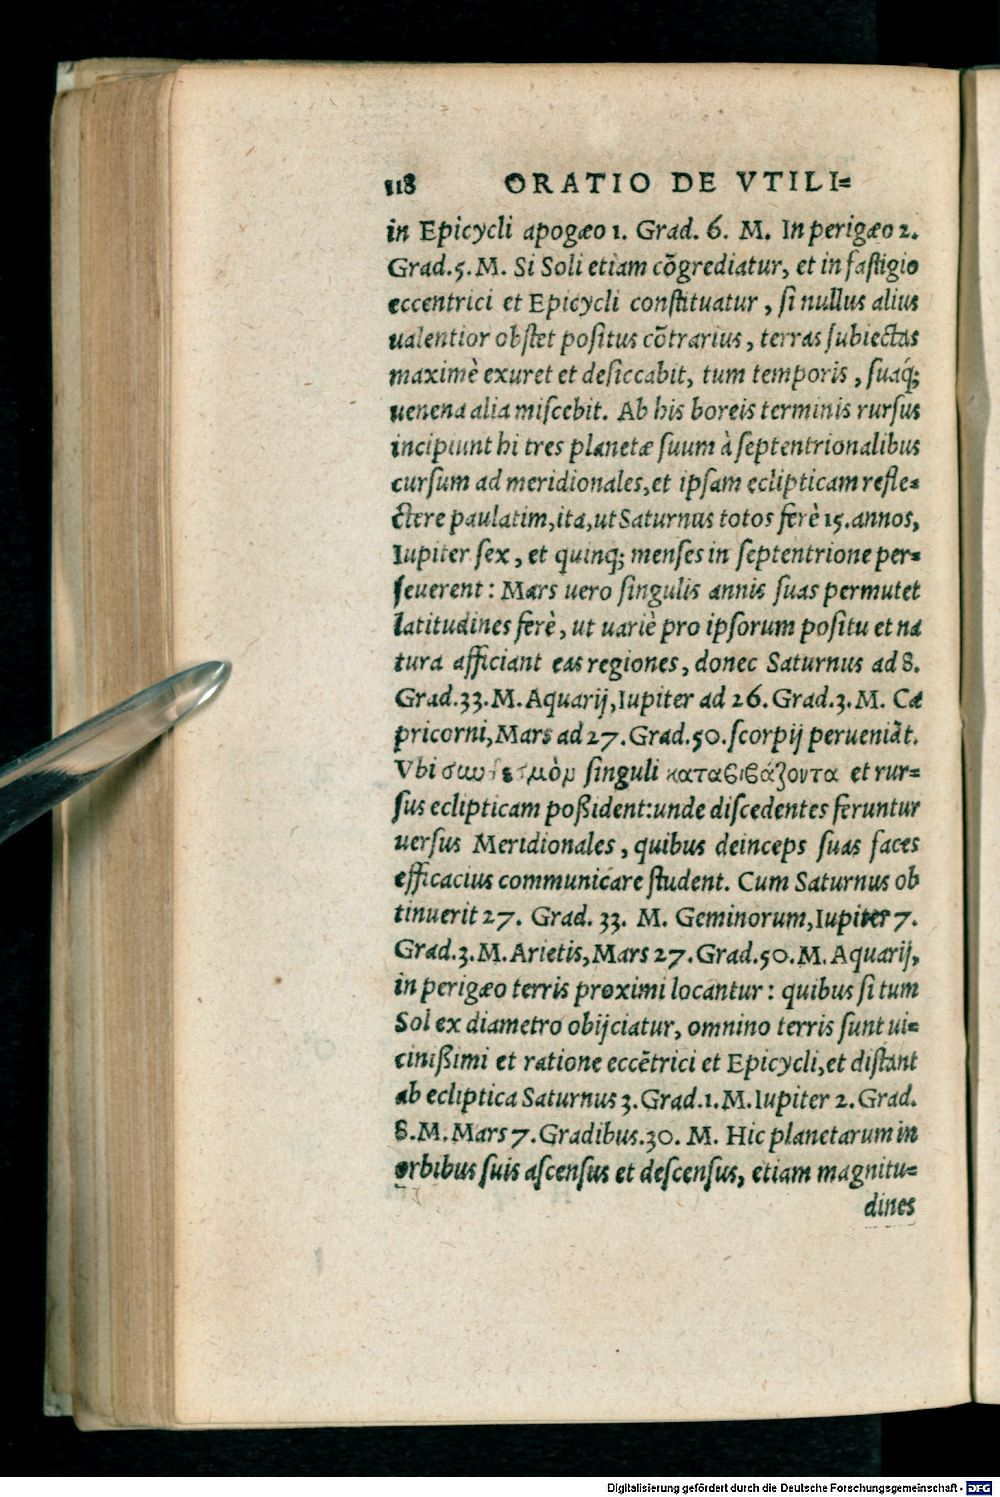 118 ORATIO DE VTILI=
in Epicycli apogæo 1. Grad. 6. M. In perigæo 2.
Grad. 5. M. Si Soli etiam cõgrediatur, et in fastigio
eccentrici et Epicycli constituatur, si nullus alius
ualentior obstet positus cõtrarius, terras subiectas
maximè exuret et desiccabit, tum temporis, suaq́;
uenena alia miscebit. Ab his boreis terminis rursus
incipiunt hi tres planetæ suum à septentrionalibus
cursum ad meridionales, et ipsam eclipticam refle=
ctere paulatim, ita, ut Saturnus totos ferè 15. annos,
Iupiter sex, et quinq; menses in septentrione per=
seuerent: Mars uero singulis annis suas permutet
latitudines ferè, ut uariè pro ipsorum positu et na
tura afficiant eas regiones, donec Saturnus ad 8.
Grad. 33. M. Aquarij, Iupiter ad 26. Grad. 3. M. Ca
pricorni, Mars ad 27. Grad. 50. scorpij perueniãt.
Vbi singuli καταβιβάζοντα et rur=
sus eclipticam poßident: unde discedentes feruntur
uersus Meridionales, quibus deinceps suas faces
efficacius communicare student. Cum Saturnus ob
tinuerit 27. Grad. 33. M. Geminorum, Iupiter 7.
Grad. 3. M. Arietis, Mars 27. Grad. 50. M. Aquarij,
in perigæo terris proximi locantur: quibus si tum
Sol ex diametro obijciatur, omnino terris sunt ui=
cinißimi et ratione eccẽtrici et Epicycli, et distant
ab ecliptica Saturnus 3. Grad. 1. M. Iupiter 2. Grad.
8. M. Mars 7. Gradibus. 30. M. Hic planetarum in
orbibus suis ascensus et descensus, etiam magnitu=
dines
Digitalisierung gefördert durch die Deutsche Forschungsgemeinschaft - DFG